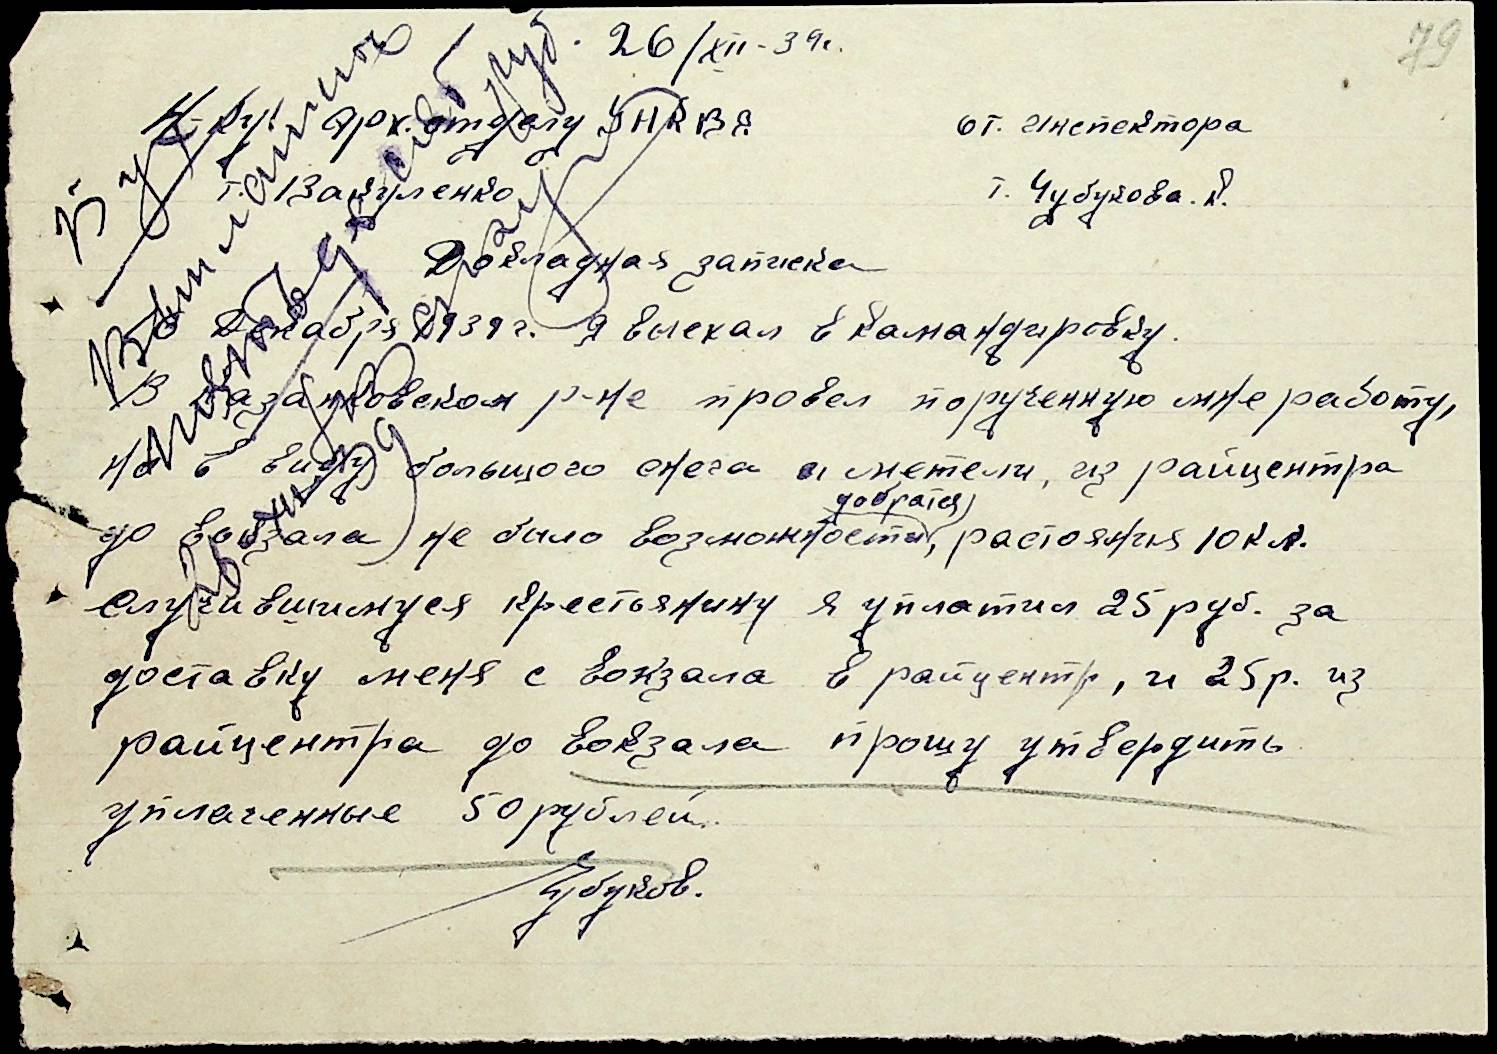 79
26/XII-39г.
Н-ку. Арх. отделу УНКВД
от. инспектора
т. Вакуленко
т. Чубукова. К.
Докладная записка
Декабря 1939г. Я выехал в камандировку.
В Казанковском р-не провел порученную мне работу,
но в виду большого снега и метели, из райцентра
добратся
до вокзала не было возможности, растояния 10 кл.
Случившимуся крестьянину я уплатил 25 руб. за
доставку меня с вокзала в райцентр, и 25 р. из
райцентра до вокзала прошу утвердить
уплаченные 50 рублей.
Чубуков.
Бух
Выплатить
руб.